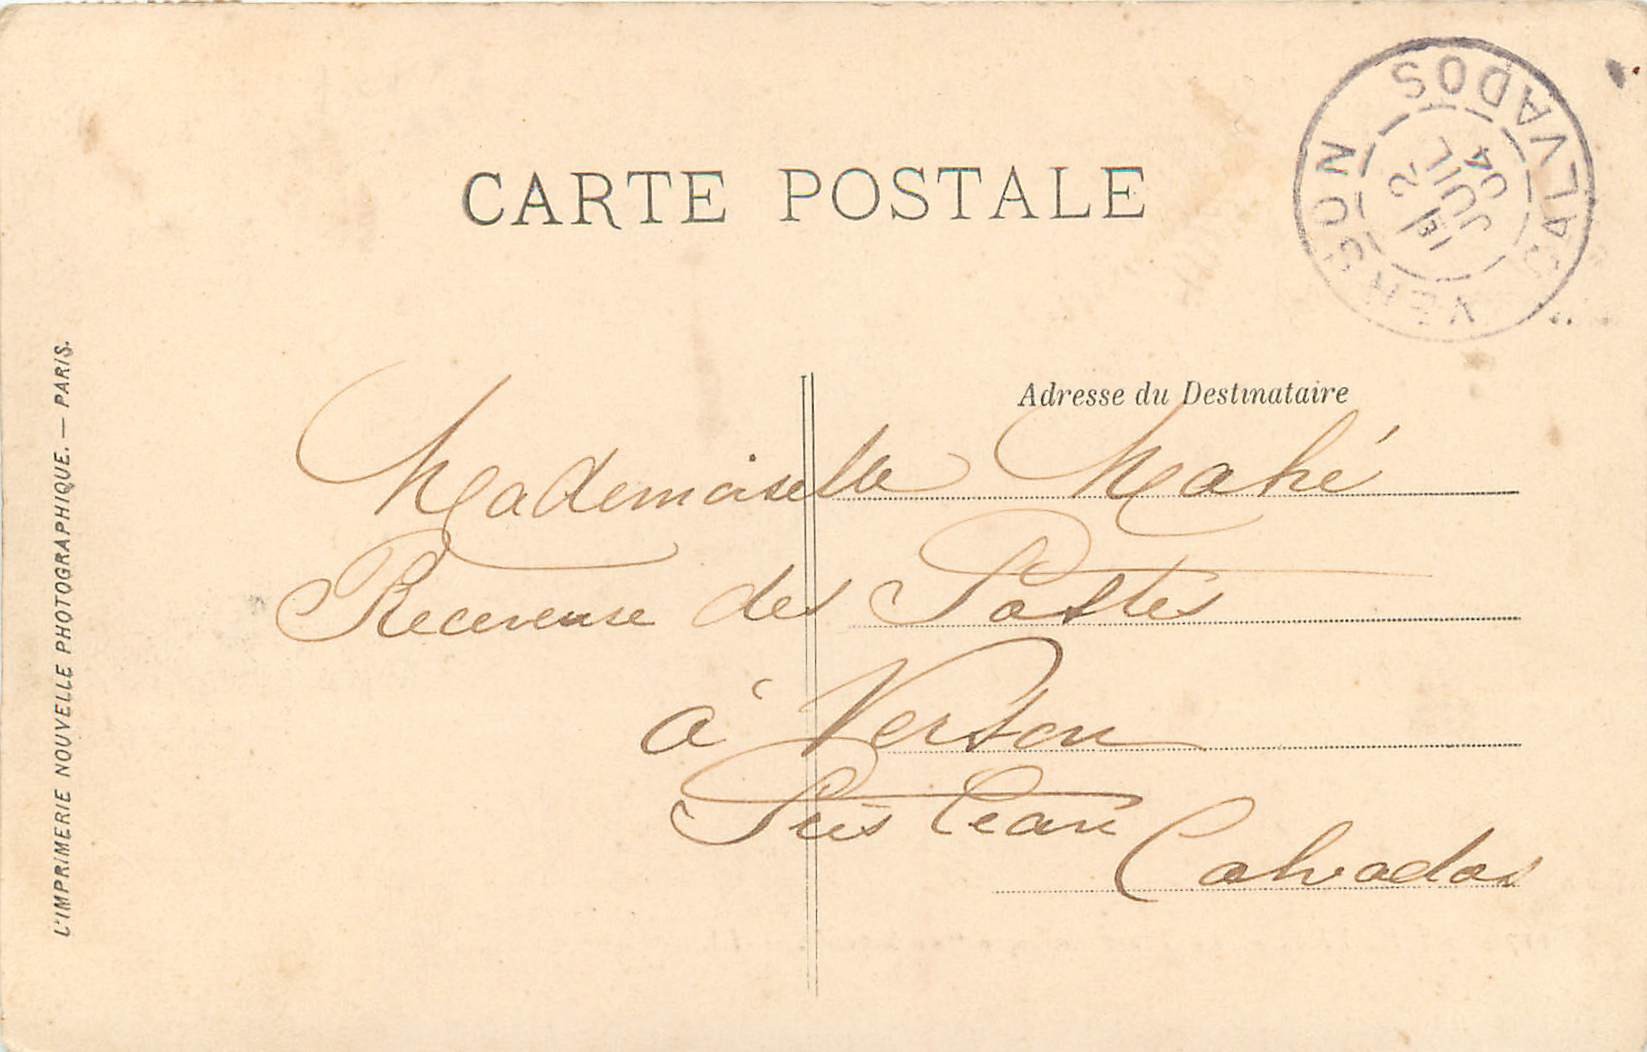 CARTE POSTALE
VERSON CALVADOS
1E
2
JUIL
04
Adresse du Destinataire
Mademoiselle Mahé
Receveuse des Postes
à Verson
Près Caen
Calvados
L'IMPRIMERIE NOUVELLE PHOTOGRAPHIQUE. — PARIS.